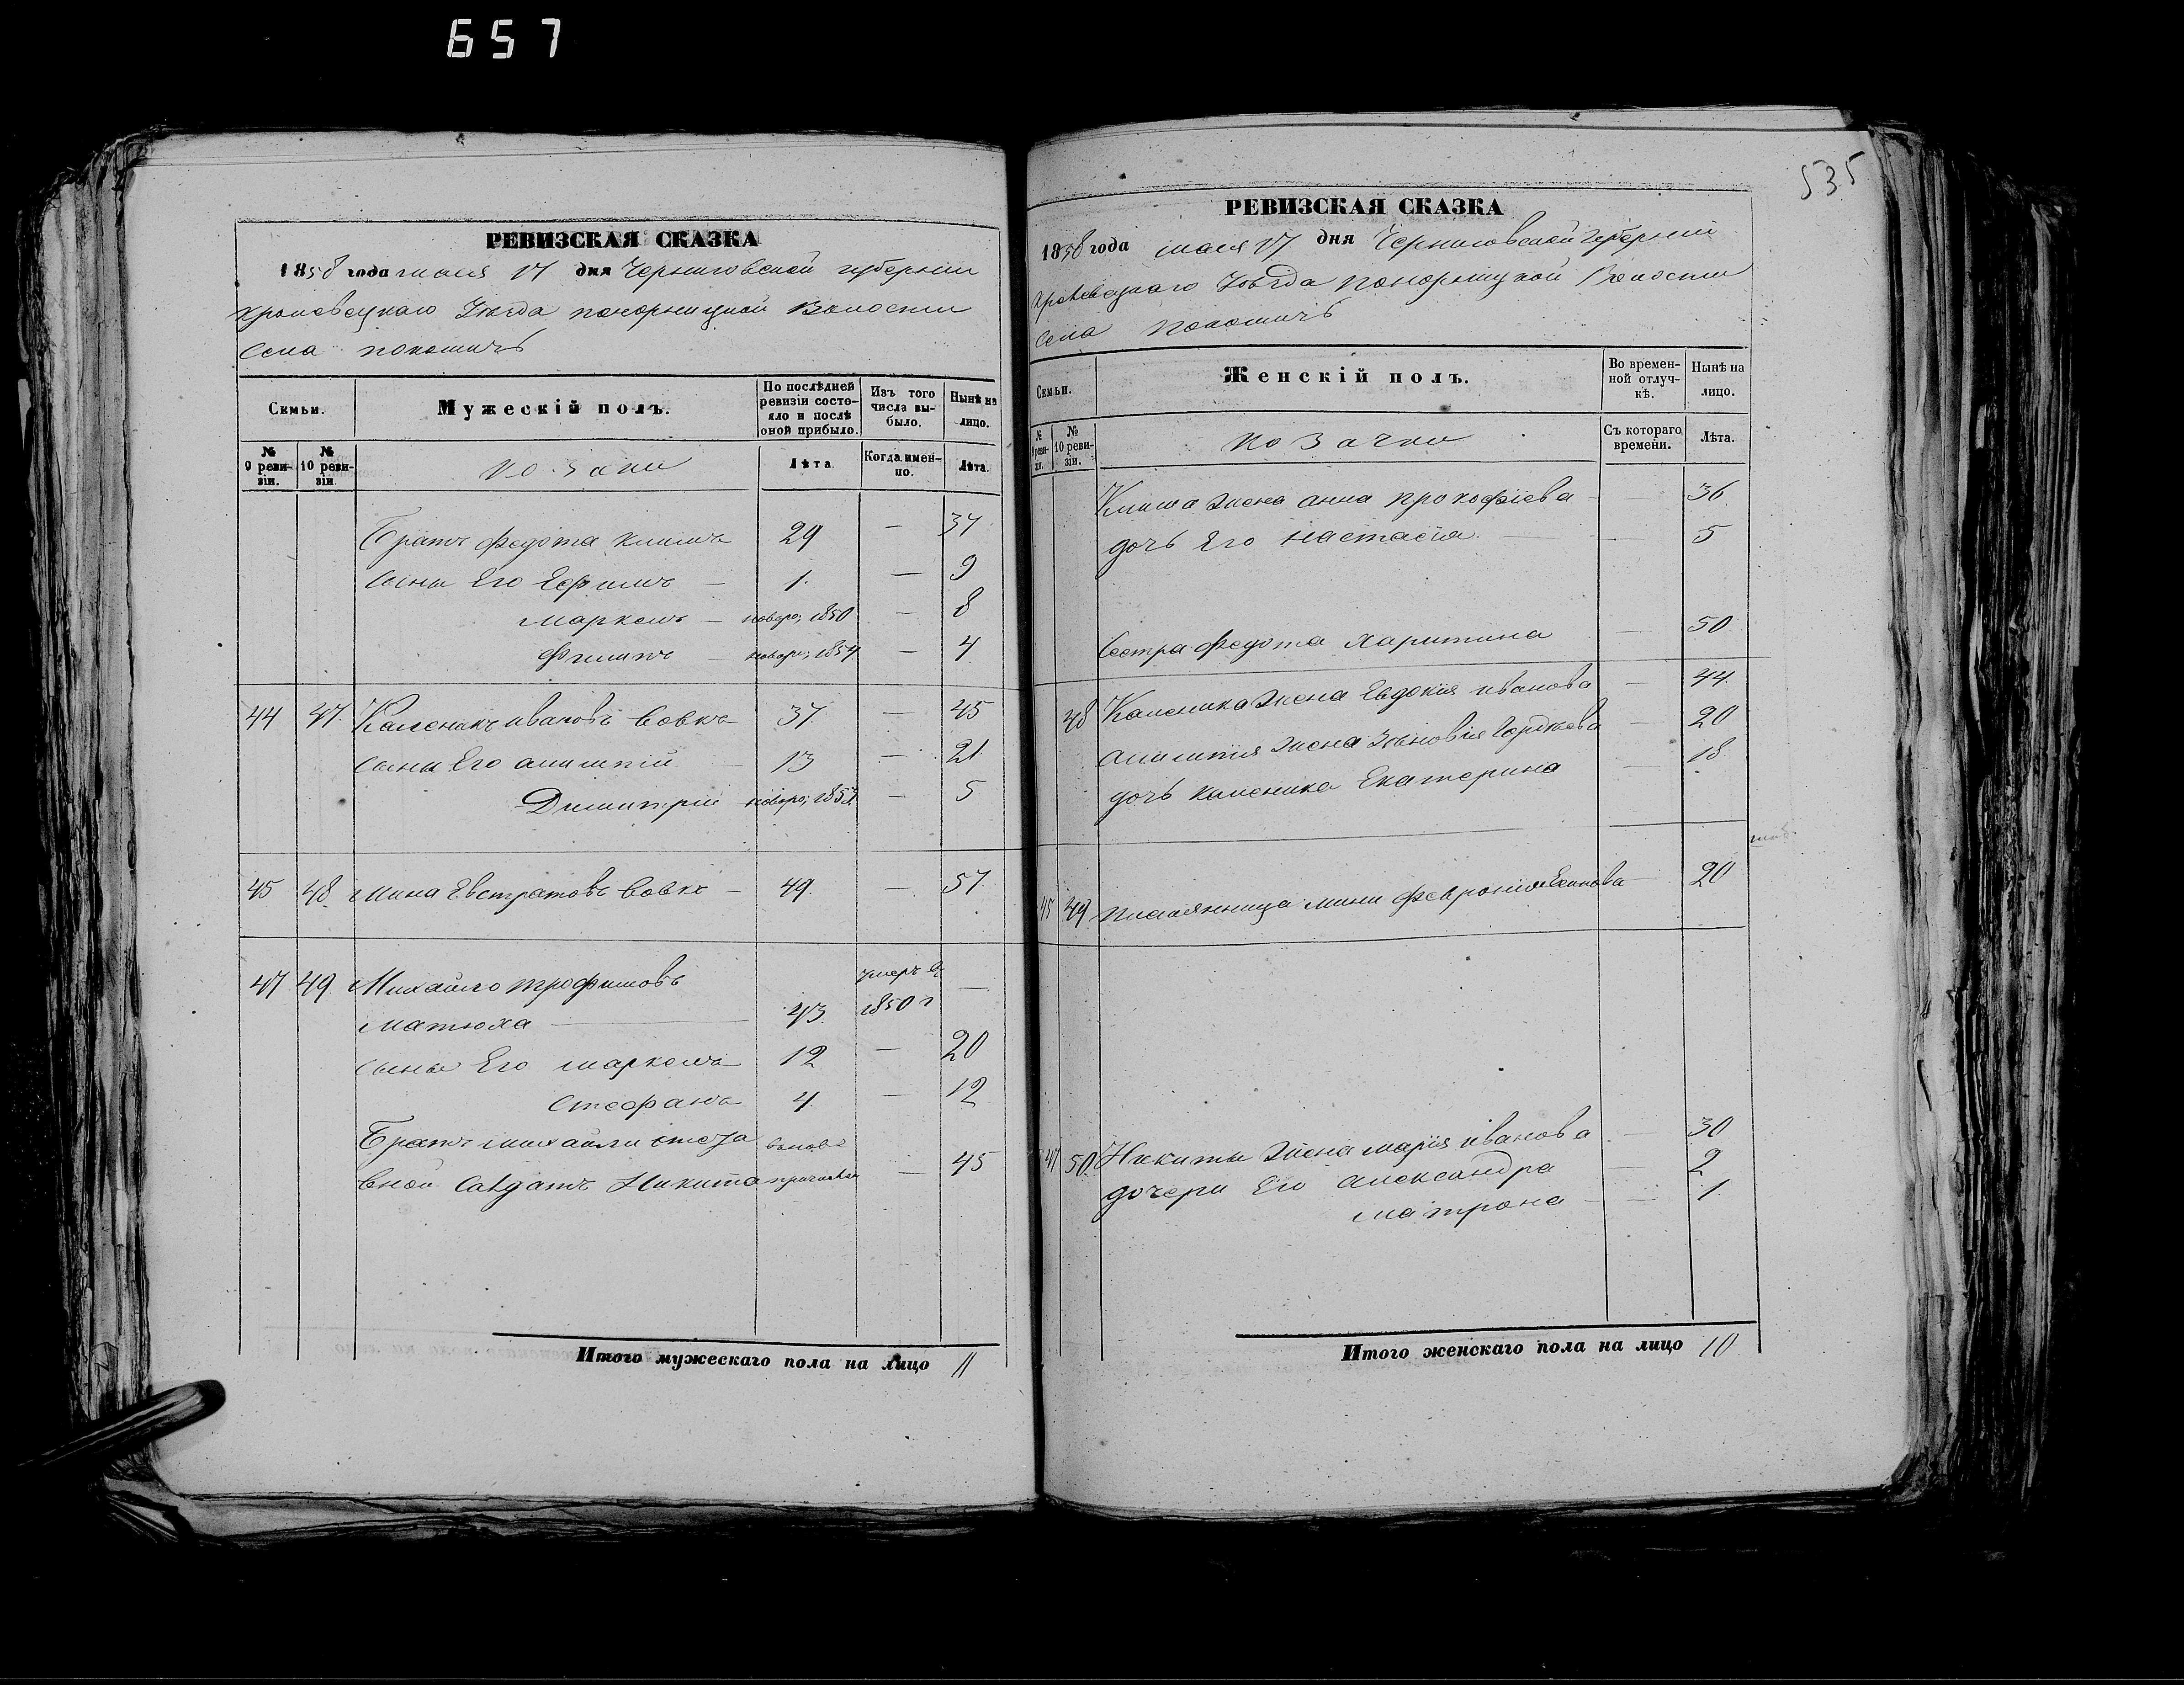 657
535
РЕВИЗСКАЯ СКАЗКА
1858 года мая 17 дня Черниговской губернии
Кролевецкаго Уезда понорницкой Волости
Села покошичъ
Семьи.
Мужескій полъ.
По послѣдней ревизіи состояло и послѣ оной прибыло.
Изъ того числа выбыло.
Нынѣ на лицо.
№ 9 ревизіи.
№ 10 ревизіи.
козаки
Лѣта.
Когда именно.
Лѣта.
Братъ Федота климъ 29 — 37
Сыны Его Ефимъ — 1. — 9
Маркелъ — новоро; 1850 — 8
Филипъ — новоро; 1854. — 4
44 47. Каленикъ ивановъ вовкъ 37 — 45
сыны Его 13 — 21
Димитрій новоро; 1853. — 5
45 48. Мина Евстратовъ вовкъ — 49. — 57
47 49 Михайло трофимовъ умеръ въ —
матюха — 43. 1850 г
сыны Его маркелъ 12 — 20
Стефанъ 4 — 12
Братъ михайлы
Салдатъ Никита — 45
Итого мужескаго пола на лицо 11
РЕВИЗСКАЯ СКАЗКА
1858 года мая 17 дня Черниговской губерніи
Кролевецкаго Уѣзда понорницкой Волости
Села Покошичъ
Семьи.
Женскій полъ.
Во временной отлучкѣ.
Нынѣ на лицо.
№ 9 ревизіи.
№ 10 ревизіи.
козачки
Съ котораго времени.
Лѣта.
Клима жена анна прокофіева — 36
дочь Его настасія. — 5
Сестра Федота Харитина — 50
48 Каленика жена Евдокия иванова — 44.
жена Зѣновія — 20
дочь каленика Екатерина — 18
45 49 племянница мины Феврония — 20
47 50. Никиты жена марія иванова — 30
дочери Его александра — 2
матрона — 1.
Итого женскаго пола на лицо 10